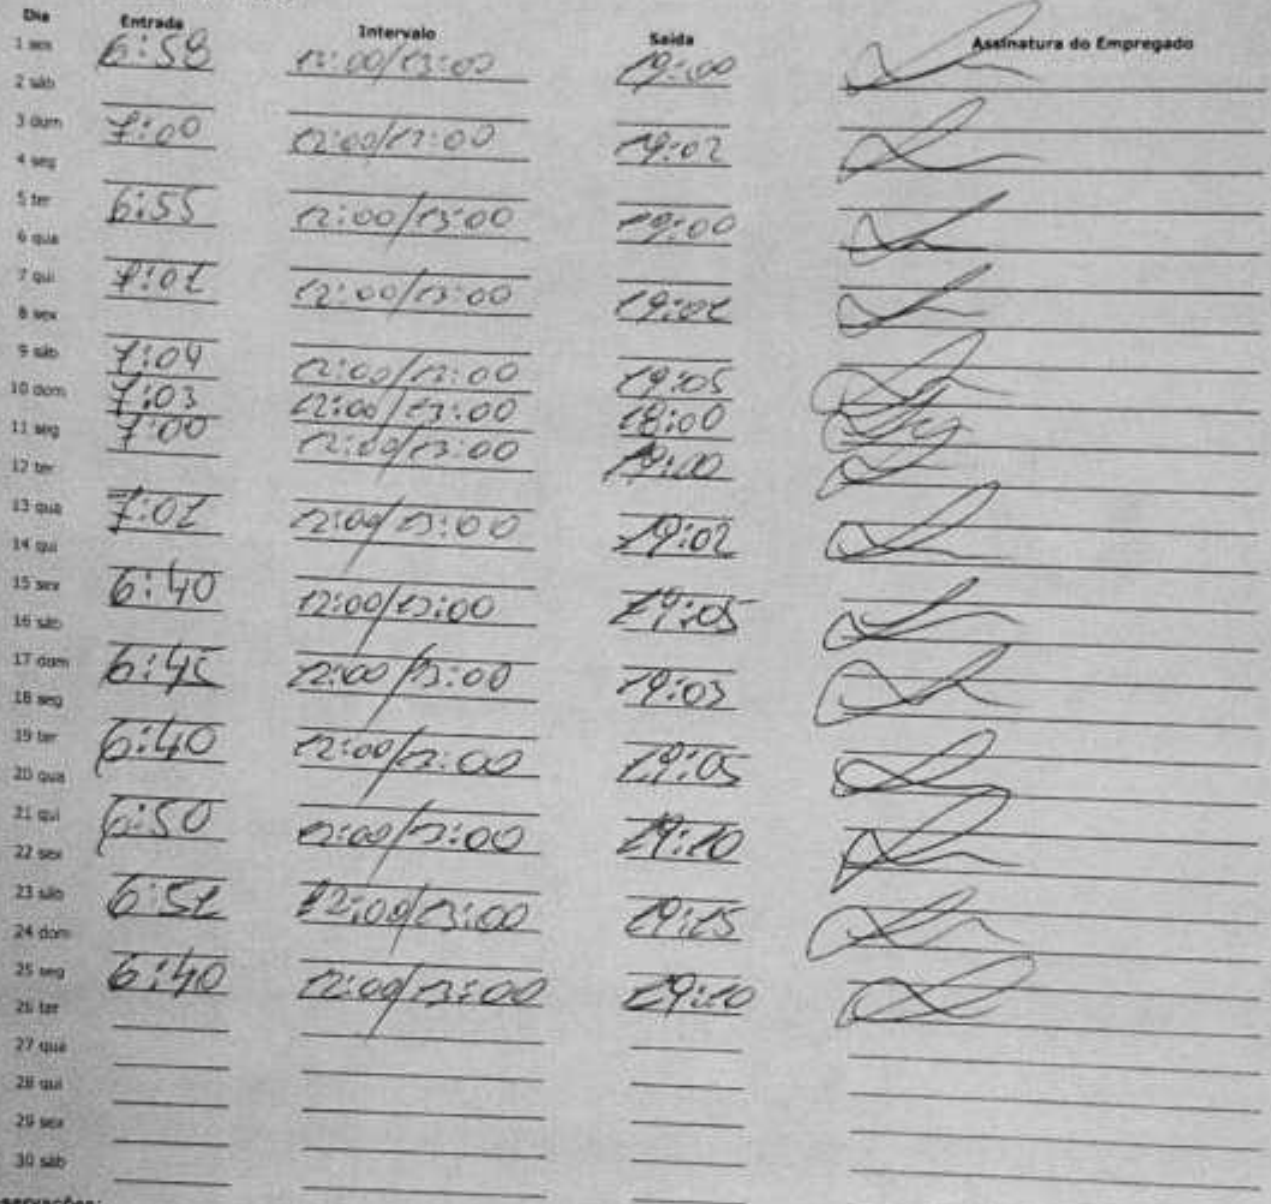 Dia Entrada Intervalo Saída Assinatura do Empregado
1 sex 6:58 12:00/13:00 19:00
2 sáb
3 dom 7:00 12:00/13:00 19:02
4 seg
5 ter 6:55 12:00/13:00 19:00
6 qua
7 qui 7:01 12:00/13:00 19:01
8 sex
9 sáb 7:04 12:00/13:00 19:05
10 dom 7:03 12:00/13:00 18:00
11 seg 7:00 12:00/13:00 19:00
12 ter
13 qua 7:02 12:00/13:00 19:02
14 qui
15 sex 6:40 12:00/13:00 19:05
16 sáb
17 dom 6:45 12:00/13:00 19:03
18 seg
19 ter 6:40 12:00/13:00 19:05
20 qua
21 qui 6:50 12:00/13:00 19:10
22 sex
23 sáb 6:51 12:00/13:00 19:15
24 dom
25 seg 6:40 12:00/13:00 19:10
26 ter
27 qua
28 qui
29 sex
30 sáb